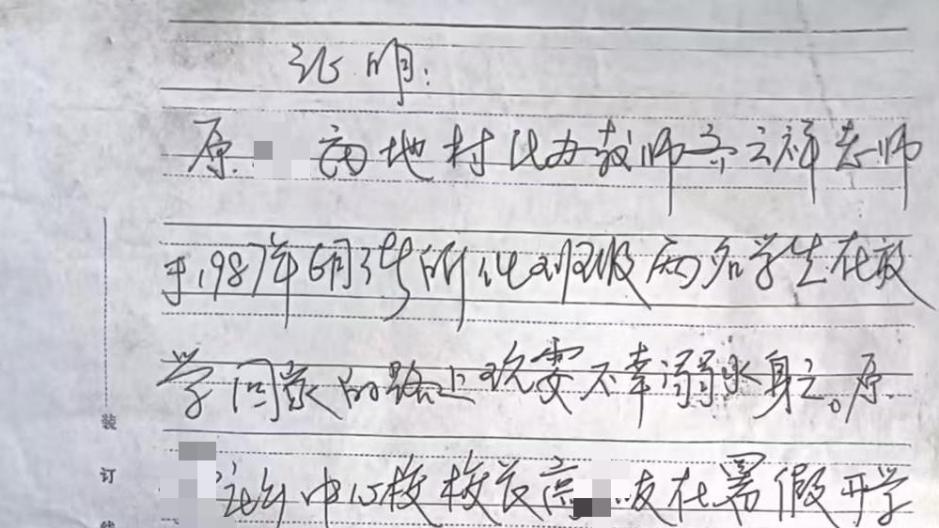 证明:
原 南地村代办教师齐云祥老师
于1987年6月3号所代班级两名学生在放
学回家的路上玩耍不幸溺水身亡。原
中心校校长高 友在暑假开学
装
订
线